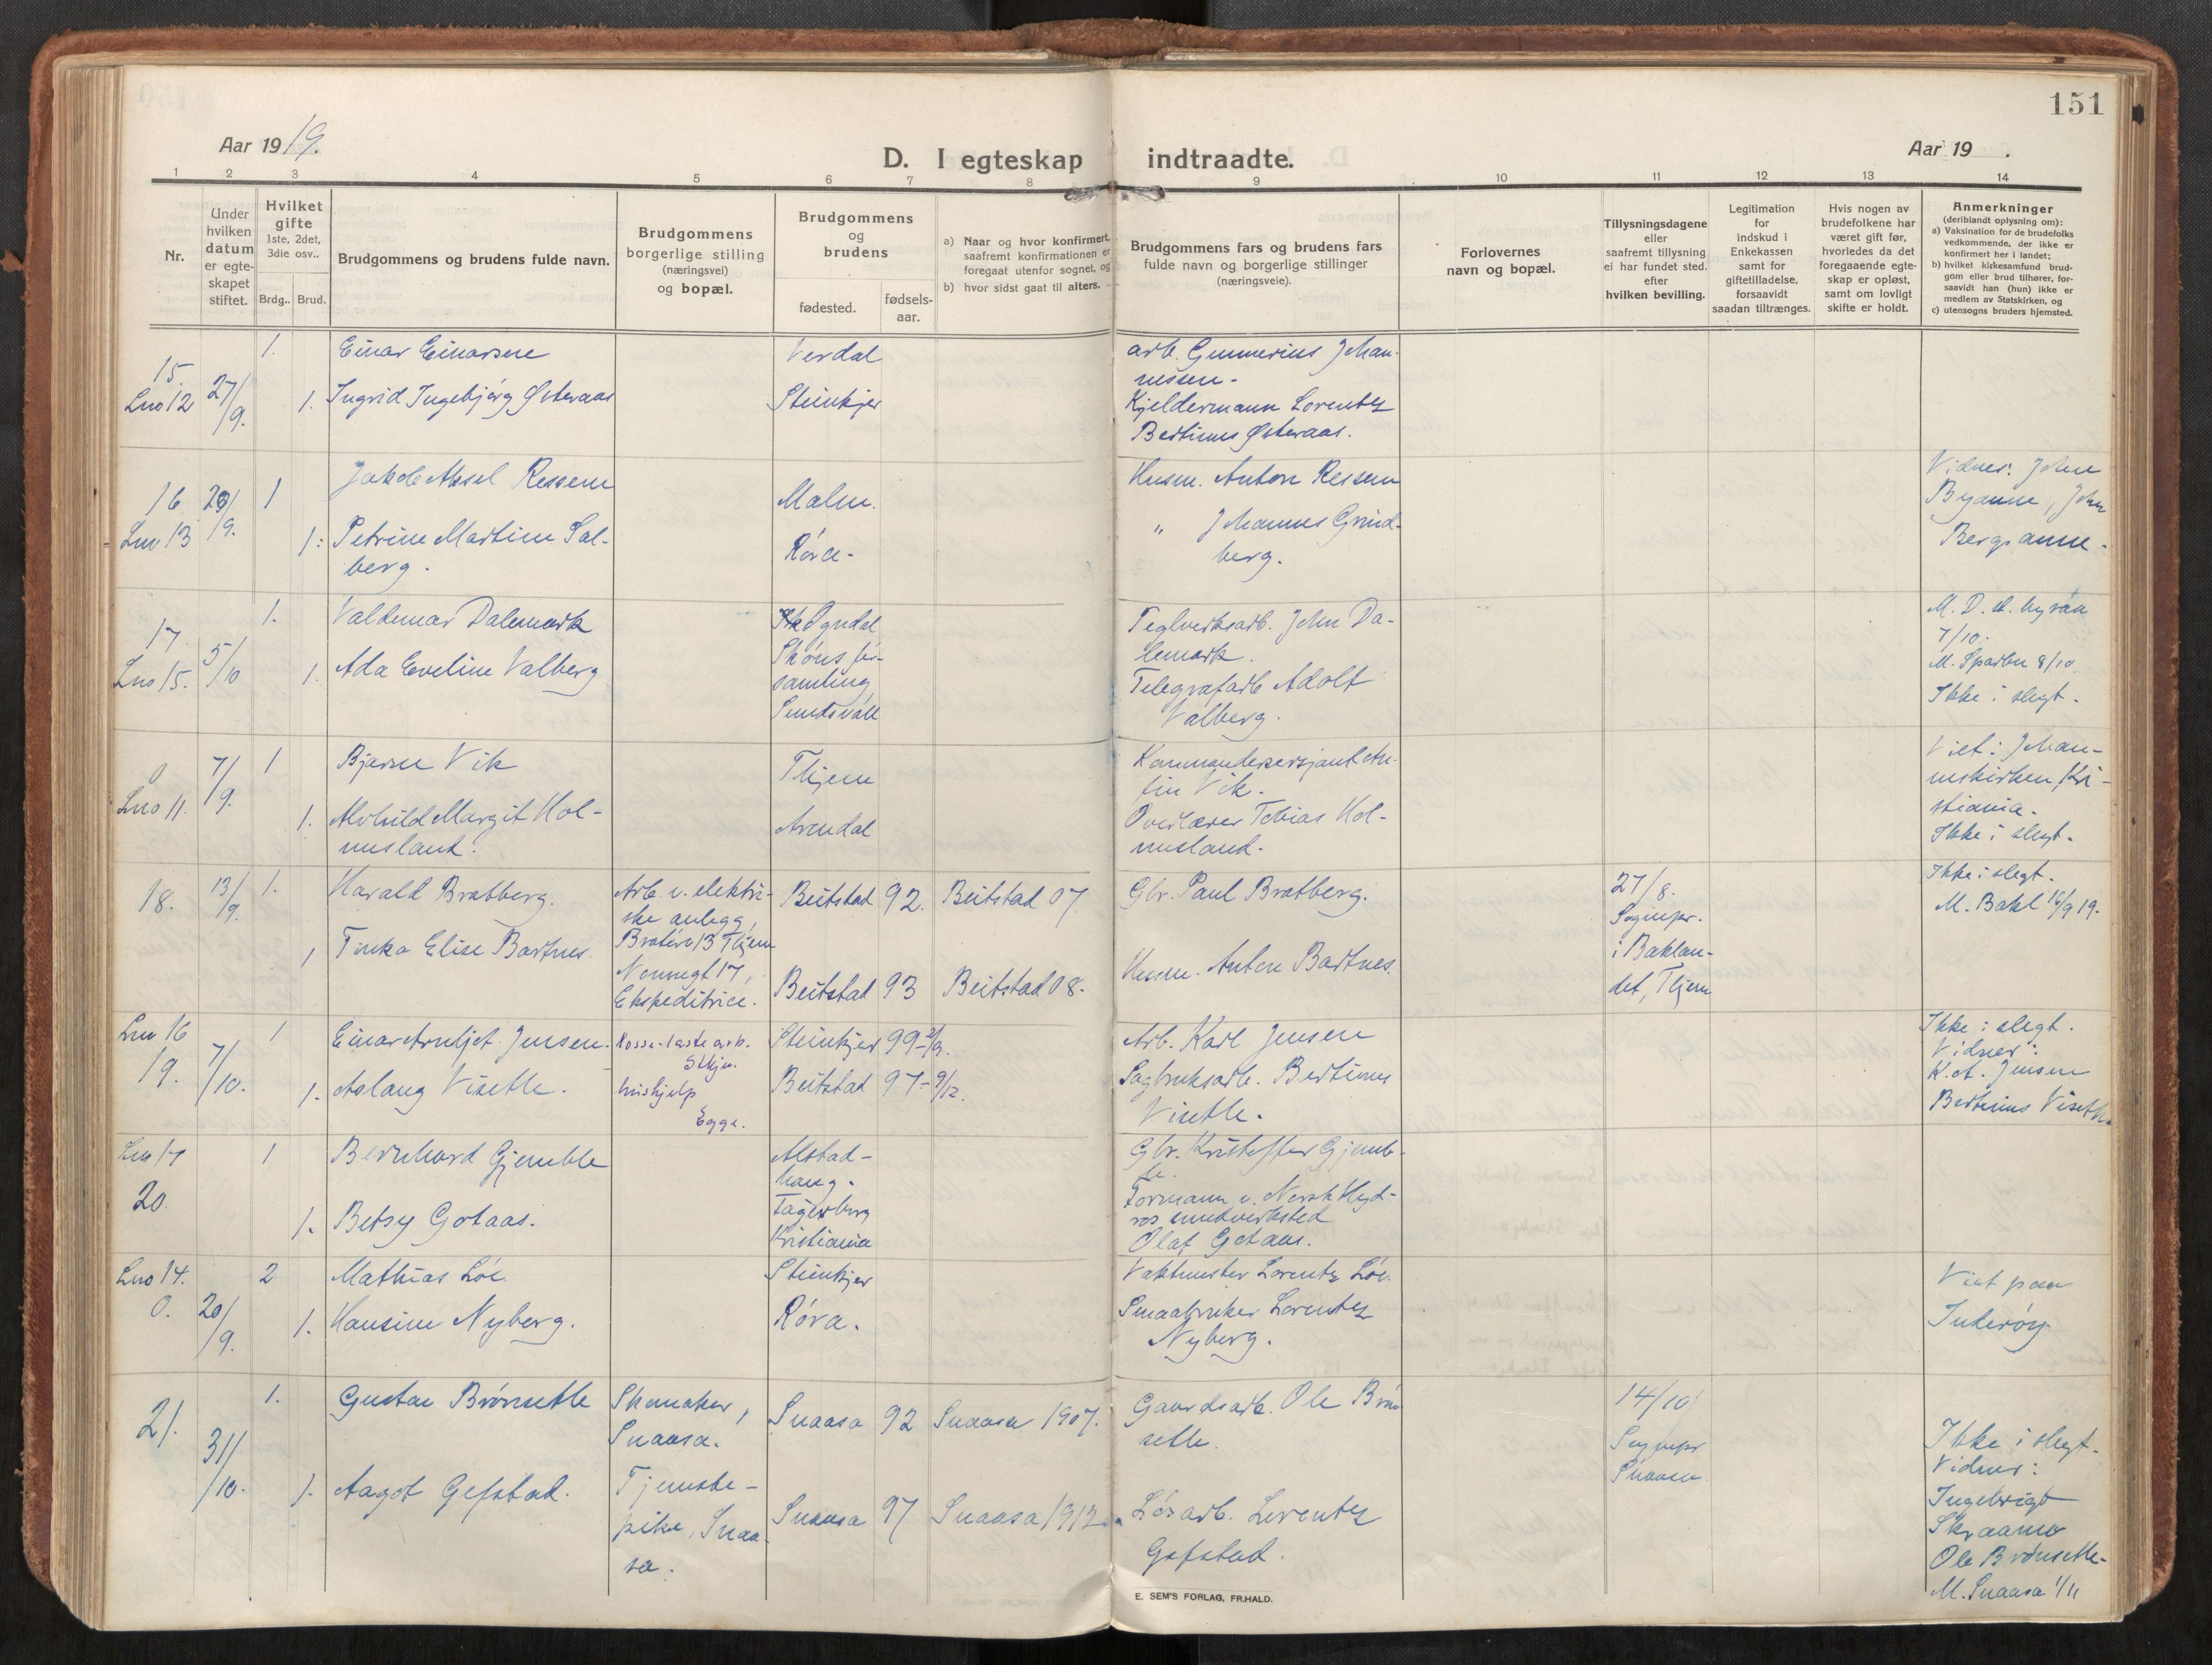 151
Aar 1919.
D. I egteskap indtraadte.
Aar 19 .
1 2 3 4 5 6 7 8 9 10 11 12 13 14
Nr.
Under
hvilken
datum
er egte-
skapet
stiftet.
Hvilket
gifte
1ste, 2det,
3die osv..
Brdg.. Brud.
Brudgommens og brudens fulde navn.
Brudgommens
borgerlige stilling
(næringsvei)
og bopæl.
Brudgommens
og
brudens
fødested.
fødsels-
aar.
a) Naar og hvor konfirmert,
saafremt konfirmationen er
foregaat utenfor sognet, og
b) hvor sidst gaat til alters.
Brudgommens fars og brudens fars
fulde navn og borgerlige stillinger
(næringsveie).
Forlovernes
navn og bopæl.
Tillysningsdagene
eller
saafremt tillysning
ei har fundet sted,
efter
hvilken bevilling.
Legitimation
for
indskud i
Enkekassen
samt for
giftetilladelse,
forsaavidt
saadan tiltrænges.
Hvis nogen av
brudefolkene har
været gift før,
hvorledes da det
foregaaende egte-
skap er opløst,
samt om lovligt
skifte er holdt.
Anmerkninger
(deriblandt oplysning om):
a) Vaksination for de brudefolks
vedkommende, der ikke er
konfirmert her i landet;
b) hvilket kirkesamfund brud-
gom eller brud tilhører, for-
saavidt han (hun) ikke er
medlem av Statskirken, og
c) utensogns bruders hjemsted.
15.
Lno 12
27/9.
1.
Einar Einarsen
Verdal
arb. Gunnerius Johan-
nessen-
1. Ingrid Ingebjørg Østeraas
Steinkjer
Kjeldermann Lorentz
Bertinus Østeraas.
16
Lno 13
29/9.
1
Jakob Aksel Ressem
Malm.
Husm. Anton Ressem
1. Petrine Martine Sal-
berg.
Røra-
" Johannes Grind-
berg.
Vidner: John
Byanne, John
Bergsanne.
17
Lno 15.
5/10
1.
Valdemar Dalemark
Ogndal
Teglverksarb. John Da-
lemark.
1. Ada Eveline Valberg
Sköns för-
samling
Sundsvall
Telegrafarb Adolf
Valberg.
7/10.
M. Sparbu 8/10.
Ikke i slegt.
0
Lno 11.
7/9.
1
Bjarne Vik
Thjem
Kommandersersjant An-
fin Vik.
1. Alvhild Margit Hol-
mesland.
Arendal
Overlærer Tobias Hol-
mesland.
Viet i Johan-
neskirken, Kri-
stiania.
Ikke i slegt.
18.
13/9.
1.
Harald Bratberg.
Arb. v. elektri-
ske anlegg,
Bratøra 13 Thjem
Beitstad 92. Beitstad 07
Gbr. Paul Bratberg.
1 Tinka Elise Bartnes.
Nonnegt 17,
Ekspeditrice.
Beitstad 93 Beitstad 08.
Husm. Anton Bartnes.
27/8.
Sognepr.
i Baklan-
det, Thjem
Ikke i slegt.
M. Bakl 16/9 19.
Lno 16
19.
7/10.
1
Einar Arnljot Jensen.
Losse-lastearb.
Stkjer.
Steinkjer 99-
Arb. Karl Jensen
1. Aslaug Visetle.
hushjelp
Egge.
Beitstad 97-9/12.
Sagbruksarb. Bertinus
Visetle.
Ikke i slegt.
Vidner:
K. A. Jensen
Bertinus Visetle
Lno 17
20.
1
Bernhard Gjemble
Alstad-
haug.
Gbr. Kristoffer Gjemb-
le.
1. Betsy Gotaas.
Fagerborg
Kristiania
Formann v. Norsk Hyd-
ros smedverksted
Olaf Gotaas.
Lno 14.
0.
20/9.
2
Mathias Løe.
Steinkjer
Vaktmester Lorentz Løe.
1. Hansine Nyberg.
Røra.
Smaabruker Lorentz
Nyberg.
Viet paa
Inderøy
21.
31/10.
1.
Gustav Brønsetle
Skomaker,
Snaasa.
Snaasa 92 Snaasa 1907.
Gaardsarb. Ole Brøn
setle.
1. Aagot Gefstad.
Tjeneste-
pike, Snaa-
sa.
Snaasa 97 Snaasa 1912.
Løsarb. Lorentz
Gefstad.
14/10
Sognepr
Snaasa
Ikke i slegt.
Vidner:
Ingebrigt
Skraamo
Ole Brønsetle.
M. Snaasa 1/11
E. SEM'S FORLAG, FR.HALD.